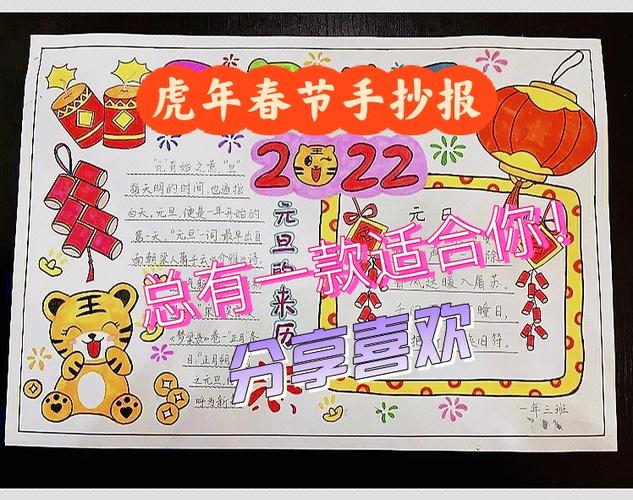 虎年春节手抄报
2022
"元"有始之意,"旦"
指天明的时间,也通指
白天。元旦,便是一年开始的
第一天。"元旦"一词,最早出自
南朝梁人萧子云《介雅》诗:
卷一"正月
"正月朔
之元旦,
呼为新
元旦的来历
元日
除
风送暖入屠苏.
千门 曈日,
把 旧符.
总有一款适合你!
分享喜欢
一年三班